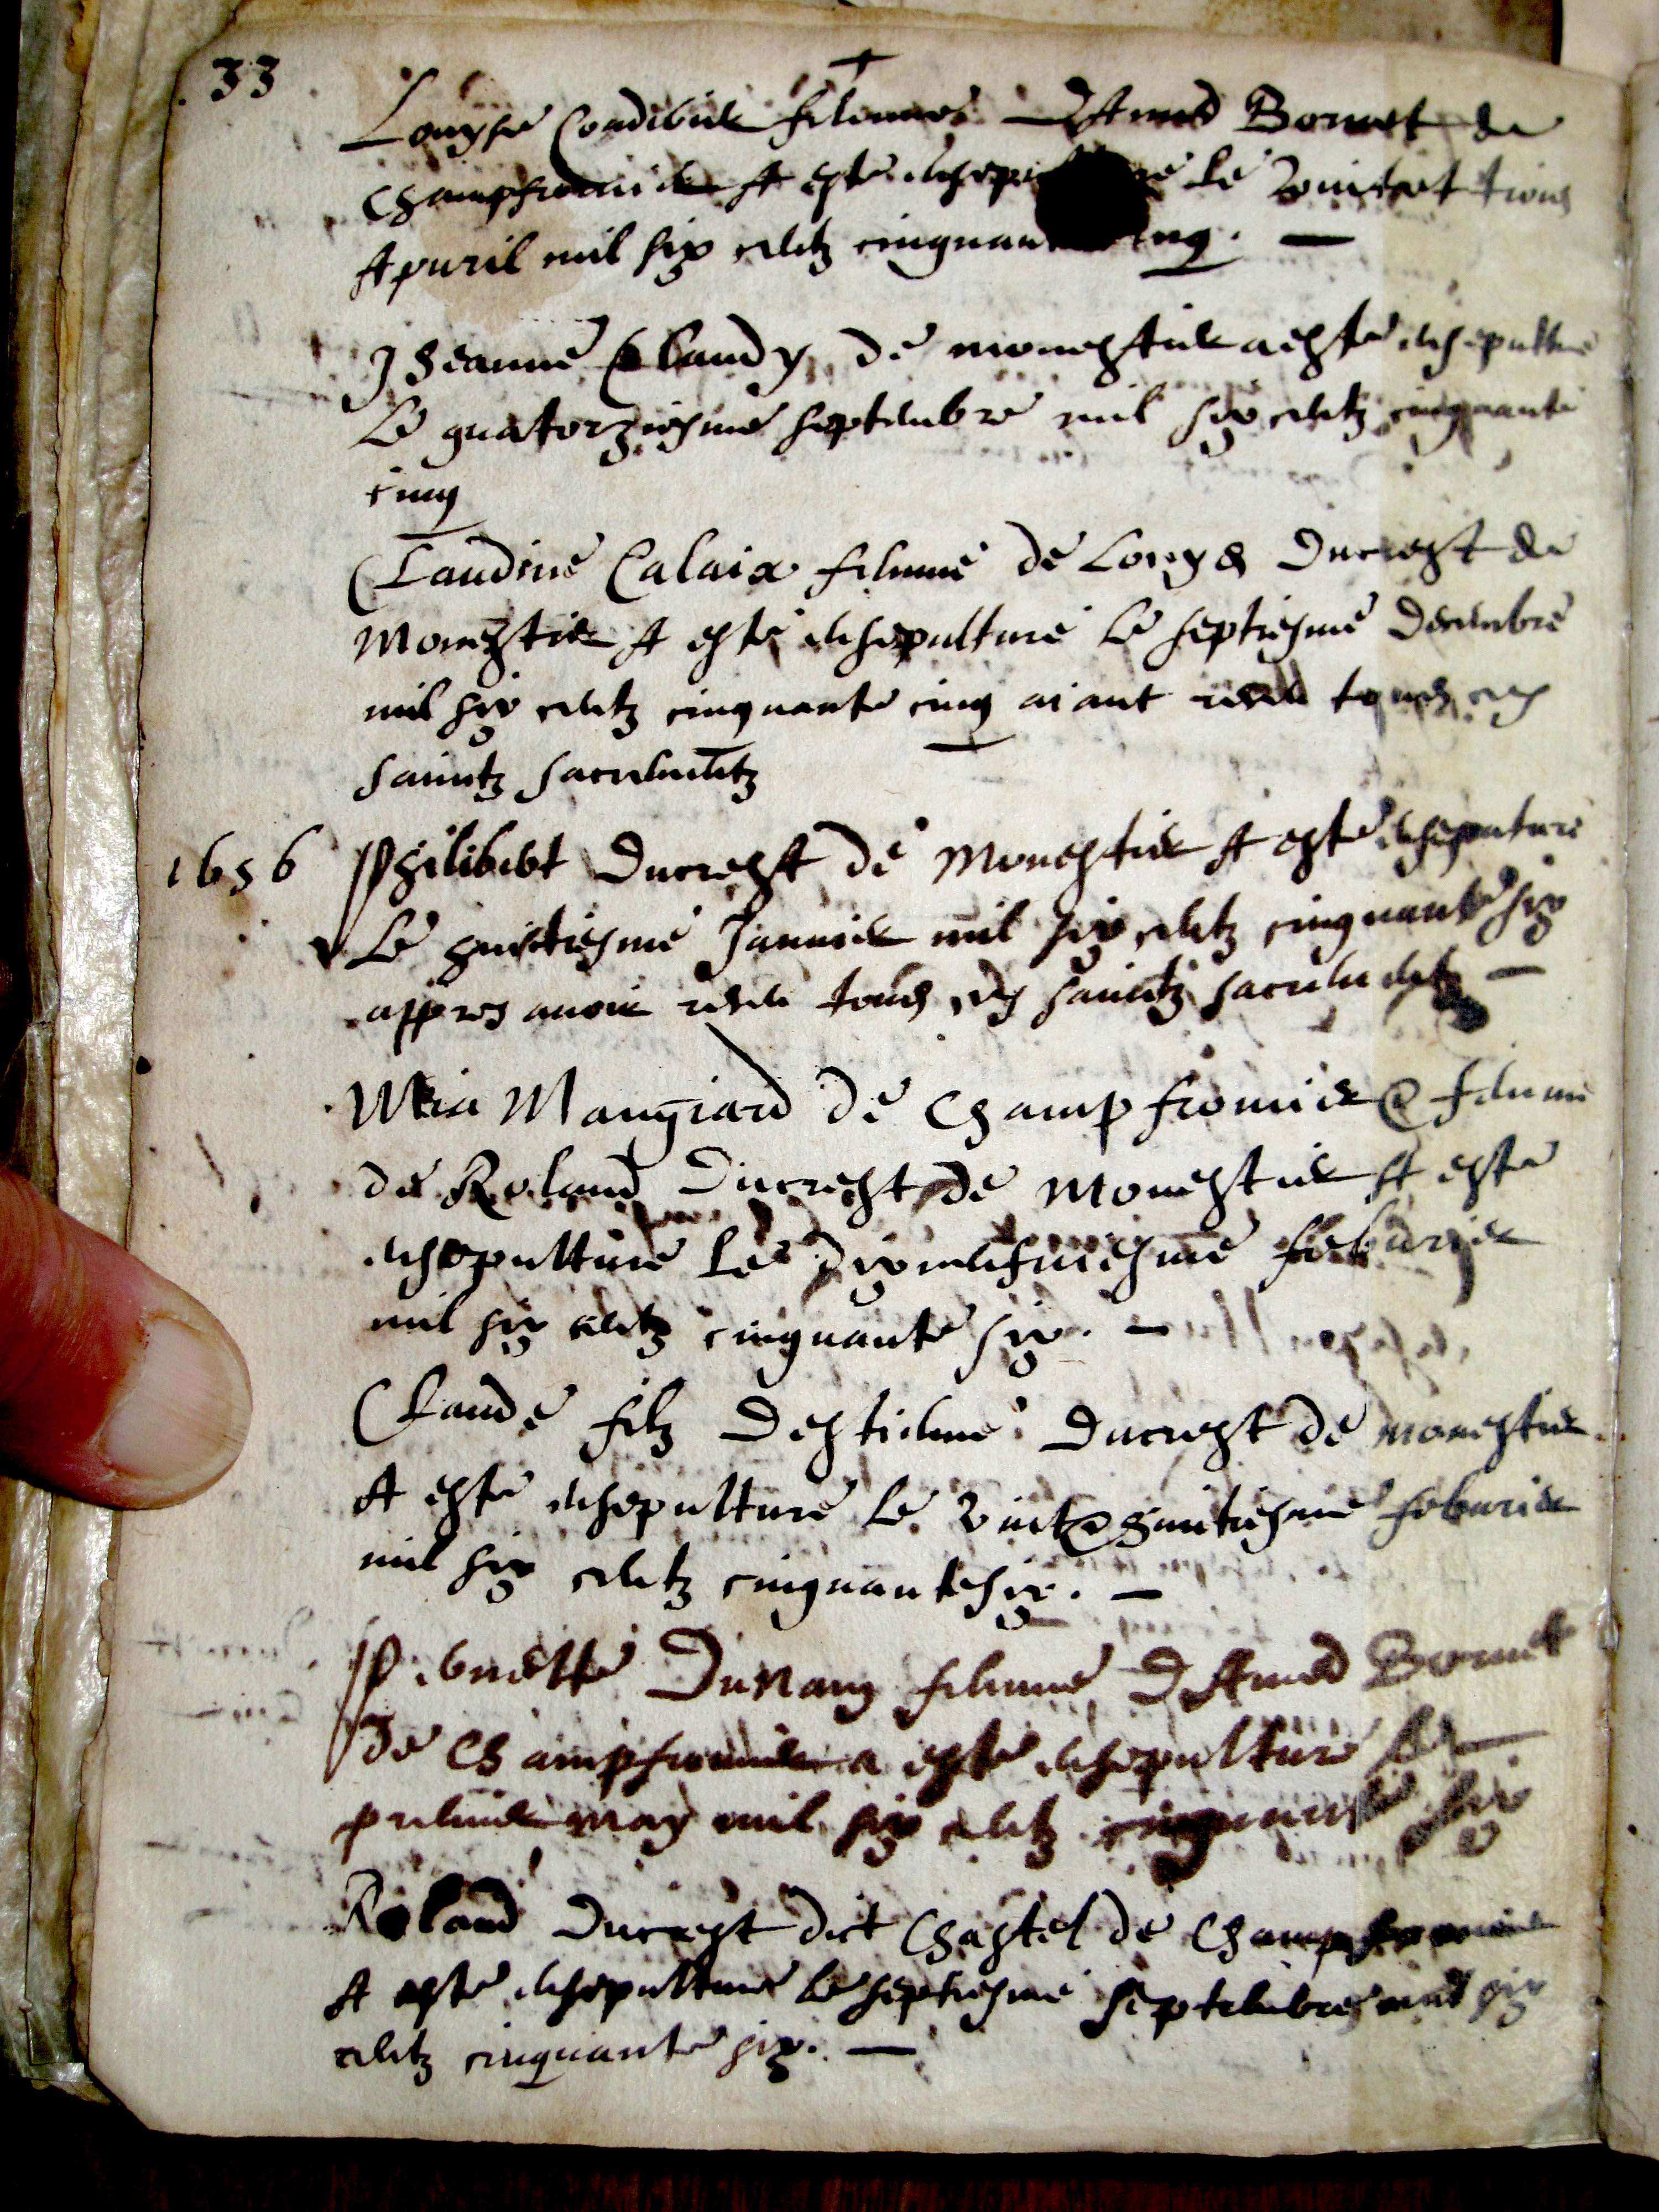 33
Louyse Coudurier femme DAmed Bornet de
Champfromier A esté ensepul le vint et trois
Apuril mil six centz cinquan cinq. —
Jheanne Claudy de monestier a esté ensepulture
Le quatorziesme septembre mil six centz cinquante
cinq
Claudine Calaix femme de Louys Ducrest de
Monestier A esté ensepulturé Le septiesme Decembre
mil six centz cinquante cinq aiant receu tous ces
sainctz sacrementz
1656 Philibert Ducrest de Monestier A esté ensepulture
Le huictiesme Januier mil six centz cinquante six
appres auoir receu tous ces sainctz sacrementz —
Mia Mangiard de Champfromier & femme
de Roland Ducrest de Monestier A esté
ensepulturé Le dixneufuiesme feburier
mil six centz cinquante six. —
Claude filz Destienne Ducrest de monestier
A esté ensepulturé Le vint & huitiesme feburier
mil six centz cinquante six. —
Pernette Dunang femme DAmed Bornet
de Champfromier a esté ensepulturé Le
premier may mil six centz cinquante six
Roland Ducrest dict Chastel de Champfromier
A esté ensepulturé Le septiesme septembre mil six
centz cinquante six. —